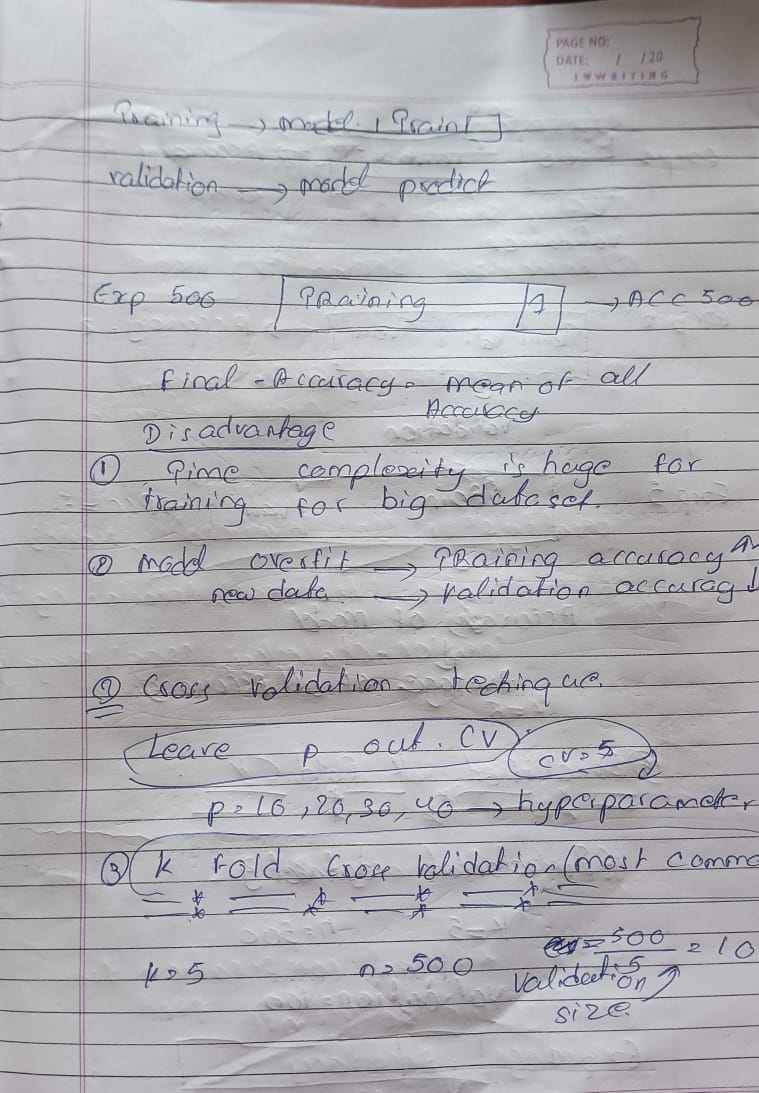 PAGE NO:
DATE: / /20
Training → model. Train[]
validation → model predict
Exp 500 Training 1 → Acc 500
Final - Accuracy = mean of all
Accuracy
Disadvantage
① Time complexity is huge for
training for big dataset.
② Model overfit → Training accuracy ↑
new data → validation accuracy ↓
② Cross validation techinque.
Leave p out. CV cv=5
p=10, 20, 30, 40 → hyperparameter
③ K Fold Cross validation (most commo
k=5 n=500 500/5 = 10
Validation
size.